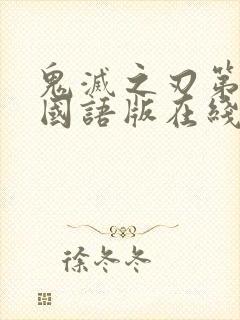 鬼滅之刃第
國語版在綫
徐冬冬